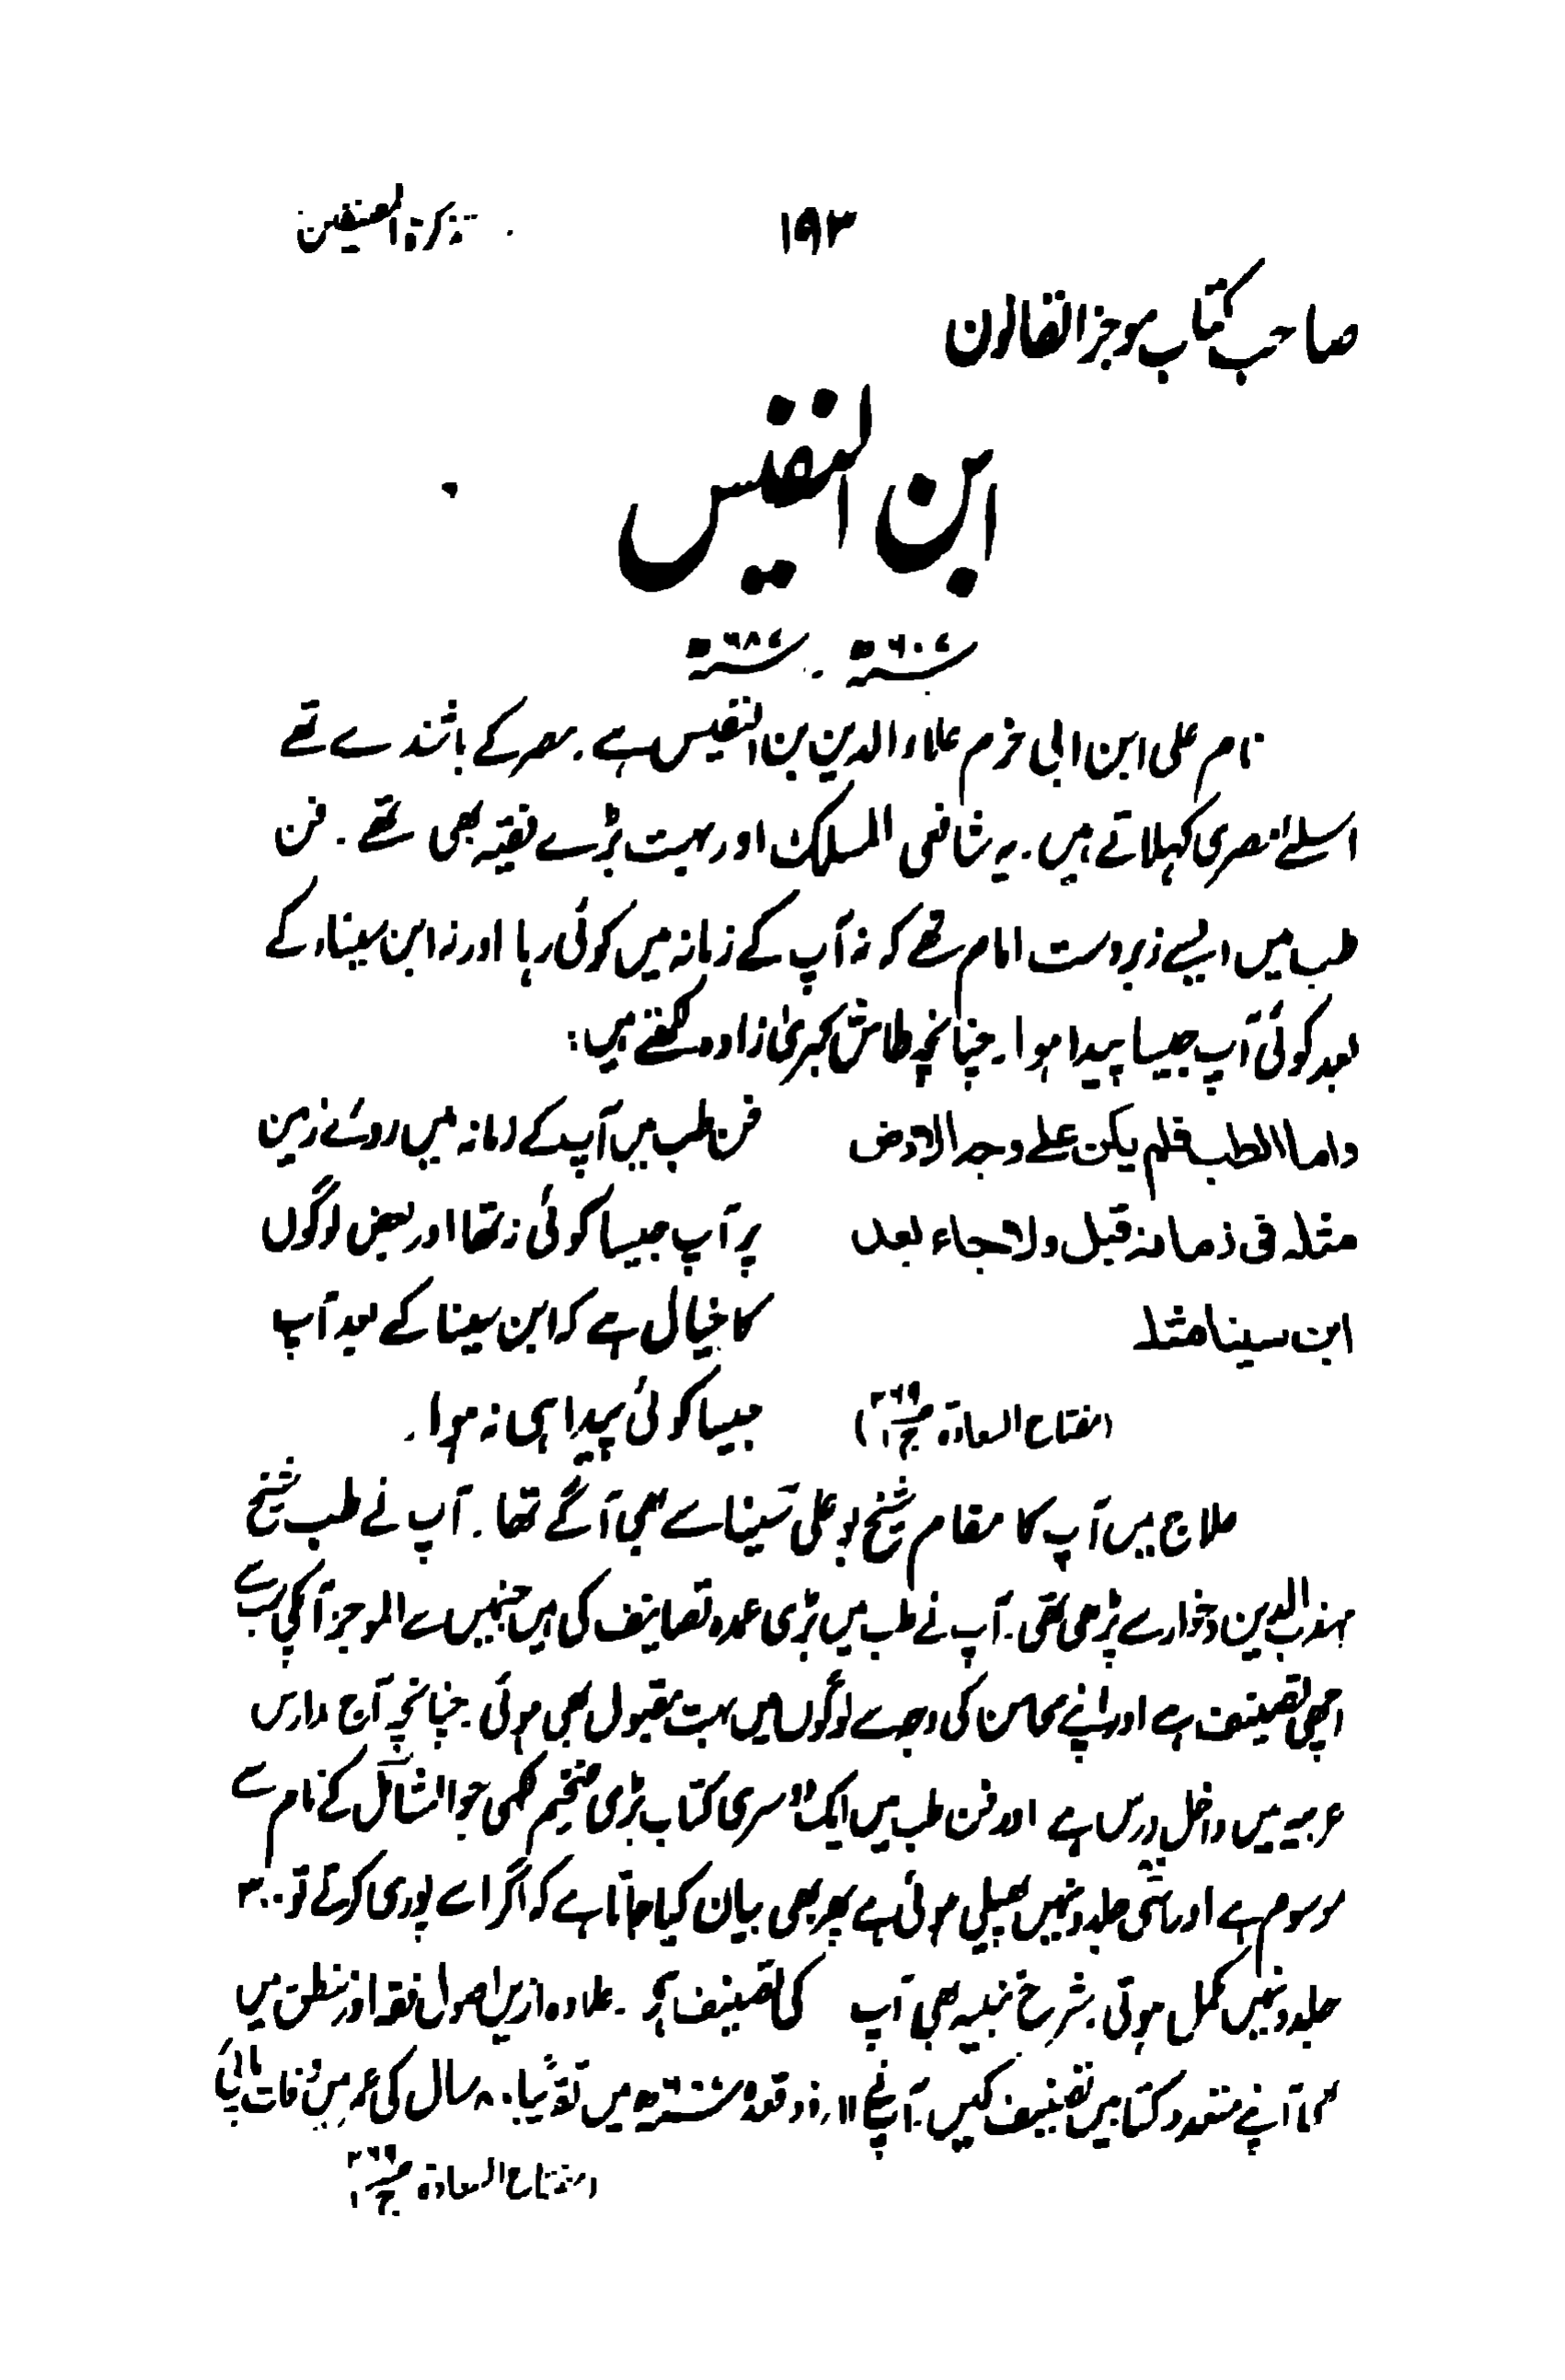 ۱۹۳ تذکرۃ المصنفین
صاحب کتاب موجز القانون
ابن النفیس
سنہ ۶۰۷ھ - سنہ ۶۸۷ھ
نام علی ابن ابی خرم علاء الدین بن النفیس ہے۔ مصر کے باشندے تھے
اسلئے مصری کہلاتے ہیں۔ یہ شافعی المسلک اور بہت بڑے فقیہ بھی تھے۔ فن
طب میں ایسے زبردست امام تھے کہ نہ آپ کے زمانہ میں کوئی رہا اور نہ ابن سیناء کے
بعد کوئی آپ جیسا پیدا ہوا۔ چنانچہ طاش کبریٰ زادہ لکھتے ہیں:
واما الطب فلم یکن علے وجہ الارض
مثلہ فی زمانہ قبل ولا جاء بعد
ابن سینا مثلہ
(مفتاح السعادۃ ص۲۶۹ ج۱)
فن طب میں آپ کے زمانہ میں روئے زمین
پر آپ جیسا کوئی نہ تھا اور بعض لوگوں
کا خیال ہے کہ ابن سینا کے بعد آپ
جیسا کوئی پیدا ہی نہ ہوا۔
علاج میں آپ کا مقام شیخ بو علی سینا سے بھی آگے تھا۔ آپ نے طب شیخ
مہذب الدین دخوار سے پڑھی تھی۔ آپ نے طب میں بڑی عمدہ تصانیف کی ہیں جنہیں سے الموجز آپکی سب سے
اچھی تصنیف ہے اور اپنے محاسن کی وجہ سے لوگوں میں بہت مقبول بھی ہوئی۔ چنانچہ آج مدارس
عربیہ میں داخل درس ہے اور فن طب میں ایک دوسری کتاب بڑی ضخیم لکھی جو الشامل کے نام سے
موسوم ہے اور اسّی جلدونہیں پھیلی ہوئی ہے پھر بھی بیان کیا جاتا ہے کہ اگر اسے پوری کرتے تو ۳۰۰
جلدونہیں مکمل ہوتی۔ شرح تنبیہ بھی آپ کی تصنیف ہے۔ علاوہ ازیں اصول فقہ اور منطق میں
بھی آپنے متعدد کتابیں تصنیف کیں۔ آپنے ۱۱ ذوقعدہ میں تقریبًا ۸۰ سال کی عمر میں وفات پائی
(مفتاح السعادۃ ص۲۶۹ ج۱